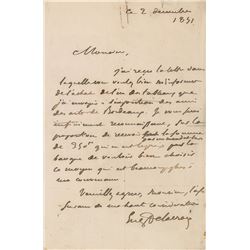 ce 2 décembre
1851
Monsieur,
j'ai reçu la lettre dans
laquelle vous voulez bien m'informer
de l'achat de l'un des tableaux que
j'ai envoyé à l'exposition des amis
des arts de Bordeaux. Je vous suis
infiniment reconnaissant de la
proposition de recevoir la somme
de 350f qui
banque de choisir
ce moyen qui est beaucoup plus
Veuillez agréer, Monsieur, l'as
surance de ma haute considération
Eug Delacroix